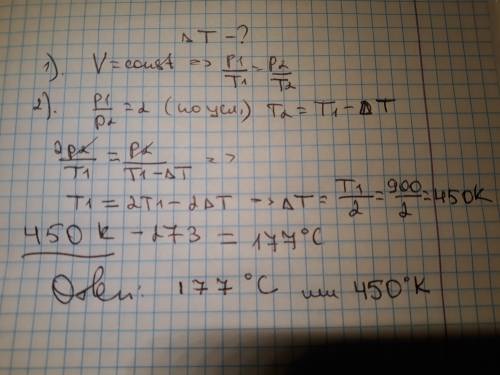 ΔT - ?
1). V = const => p1/T1 = p2/T2
2). p1/p2 = 2 (по усл.) T2 = T1 - ΔT
2p2/T1 = p2/T1 - ΔT =>
T1 = 2T1 - 2ΔT -> ΔT = T1/2 = 900/2 = 450K
450 K - 273 = 177°C
Ответ: 177°C или 450°K